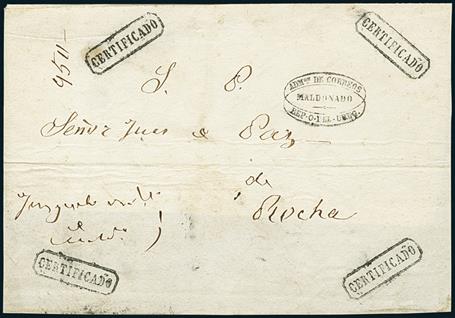 CERTIFICADO
CERTIFICADO
S. P.
ADMON DE CORREOS
MALDONADO
REP. O. DEL URUG.
Señor Juez de Paz
de
Rocha
Juzgado
CERTIFICADO
CERTIFICADO